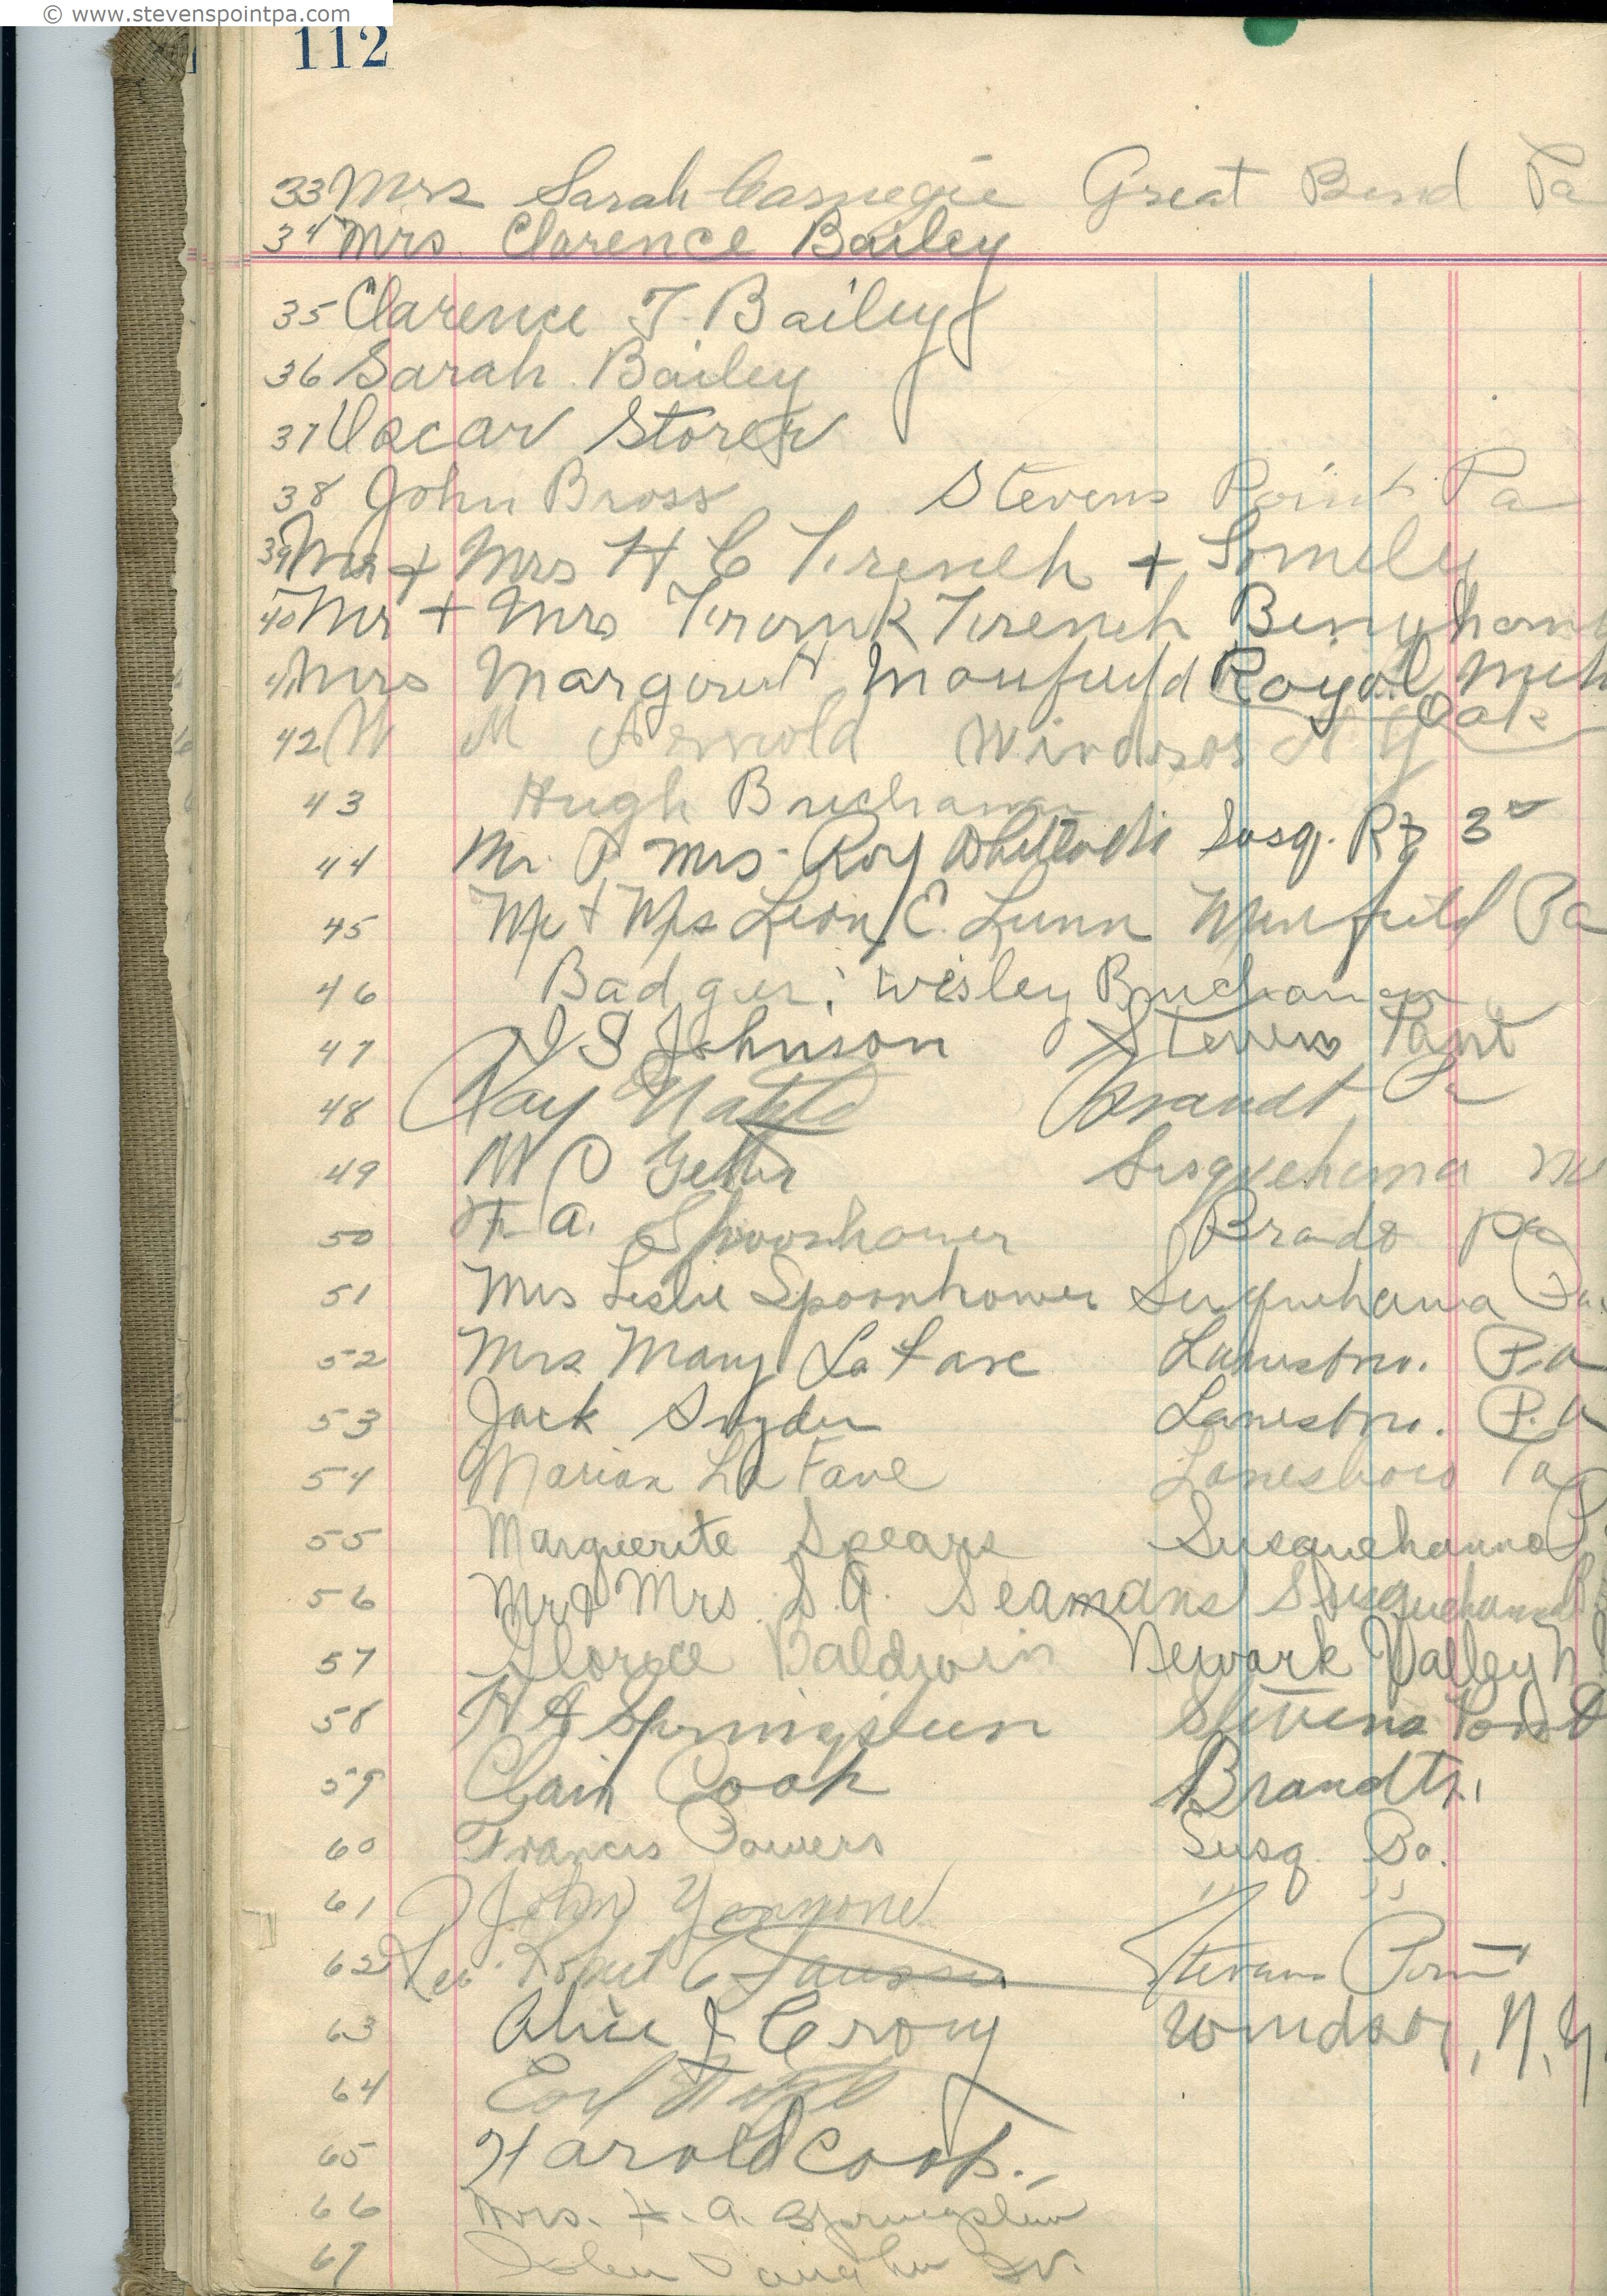 © www.stevenspointpa.com
112
33 Mrs Sarah Carnegie Great Bend Pa
34 Mrs. Clarence Bailey
35 Clarence T. Bailey
36 Sarah Bailey
37 Oscar Storer
38 John Bross Stevens Point Pa
39 Mr + Mrs H C French + Fomily
40 Mr + Mrs Fronk French Binghom
41 Mrs Margaret Monsfield Royal Mich
Oak
42 W M Arnold Windsor N Y
43 Hugh Buchanan
44 Mr. & Mrs. Roy Susq. R D 3
45 Mr + Mrs Leon E. Lunn Pa
46 Badger. Wesley Buchanan
47 S Johnson Stevens Point
48 Ray Brandt Pa
49 Susquehanna
50 A. Spoonhower Pa
51 Mrs Leslie Spoonhower Susquehanna Pa.
52 Mrs Mary La Fave Lanesboro. P.a
53 Jack Snyder Lanesboro. P.a
54 Marian La Fave Lanesboro Pa
55 Marguerite Spears Susquehanna P
56 Mr & Mrs. S. A. Seamans Susquehanna
57 Baldwin Newark Valley N.
58 H A Springsteen Stevens Point
59 Clair Cook Brandt
60 Francis Powers Susq. Pa.
61 John Yannone " "
62 Rev. Robert C Stevens Point
63 Alice J Crory Windsor, N.Y.
64 Earl
65 Harold Cook.
66 Mrs. H. A. Springsteen
67 John